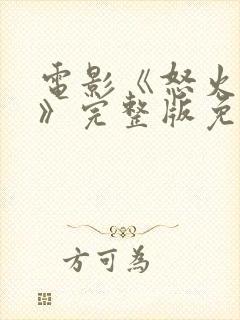 電影《怒火
》完整版免
方可為